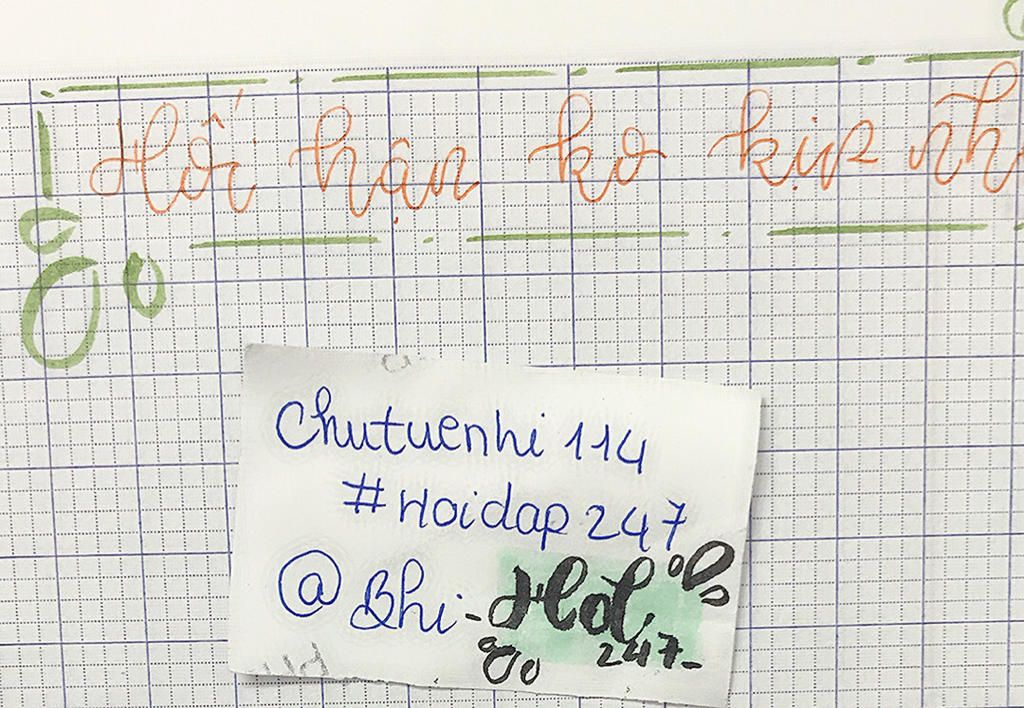 Hối hận ko kịp nh
Chutuenhi 114
#Hoidap247
@Bhi-Hội
247-